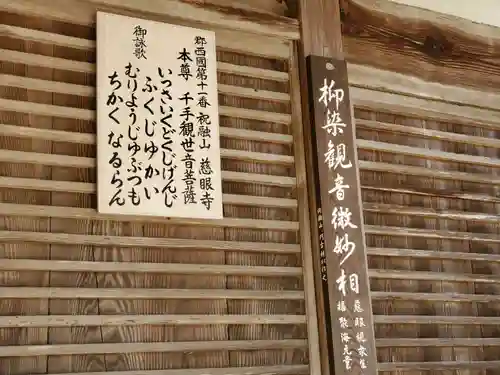 郡西國第十一番 祝融山 慈眼寺
本尊 千手観世音菩薩
御詠歌
いっさいくどくじげんじ
ふくじゆかい
むりようじゆぶつも
ちかくなるらん
柳染観音微妙相
慈眼視衆生
福聚海無量